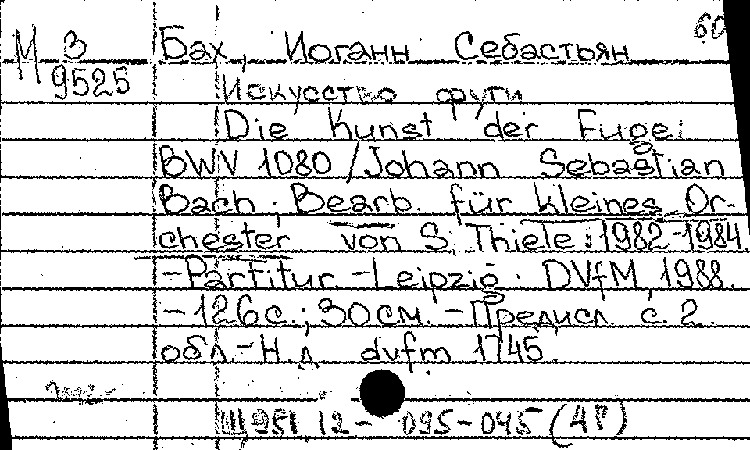 М 3 Бах, Иоганн Себастьян 60
9525 Искусство фуги
Die Kunst der Fuge:
BWV 1080 / Johann Sebastian
Bach; Bearb. für kleines Or-
chester von S. Thiele: 1982-1984.
-Partitur.-Leipzig: DVfM, 1988.
-126с.; 30см.-Предисл. с. 2
обл.-Н.д. dvfm 1745.
Щ951.12- 095-045 (4Г)